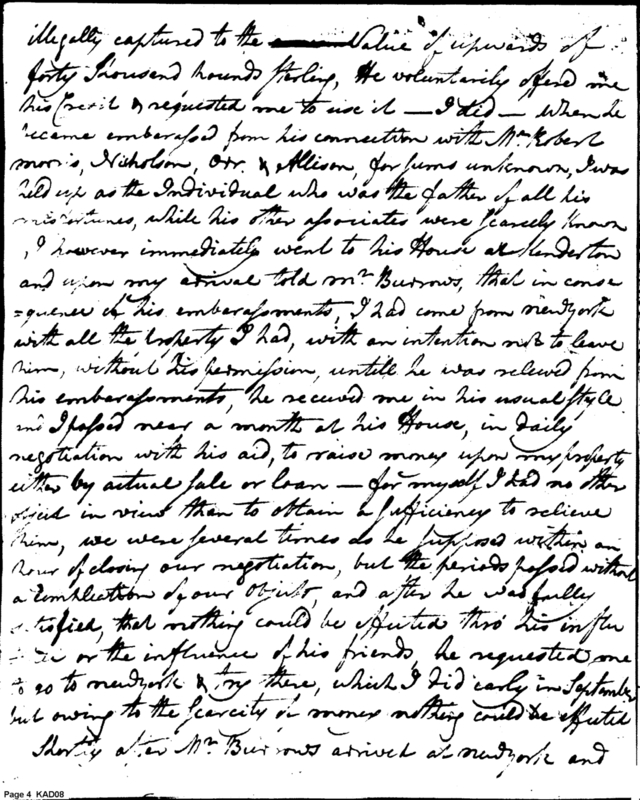 illegally captured to the Value of upwards of
forty thousand pounds Sterling, He voluntarily offered me
his Credit & requested me to use it — I did — When he
became embarassed from his connection with Mr. Robert
morris, Nicholson, Orr & Allison, for sums unknown, I was
held up as the Individual who was the father of all his
misfortunes, while his other associates were scarcely known
, I however immediately went to his House at Kinderton
and upon my arrival told Mr Burrows, that in conse
=quence of his embarassments, I had come from newyork
with all the property I had, with an intention not to leave
him, without his permission, untill he was relieved from
his embarassments, he received me in his usual style
and I passed near a month at his House, in daily
negotiation with his aid, to raise money upon my property
either by actual sale or loan — for myself I had no other
object in view than to obtain a sufficiency to relieve
him, we were several times as he supposed within an
hour of closing our negotiation, but the periods passed without
a completion of our object, and after he was fully
satisfied, that nothing could be effected thro his influ
or the influence of his friends, he requested me
to go to newyork & try there, which I did early in September
but owing to the scarcity of money nothing could be effected
Shortly after Mr Burrows arrived at newyork and
Page 4 KAD08